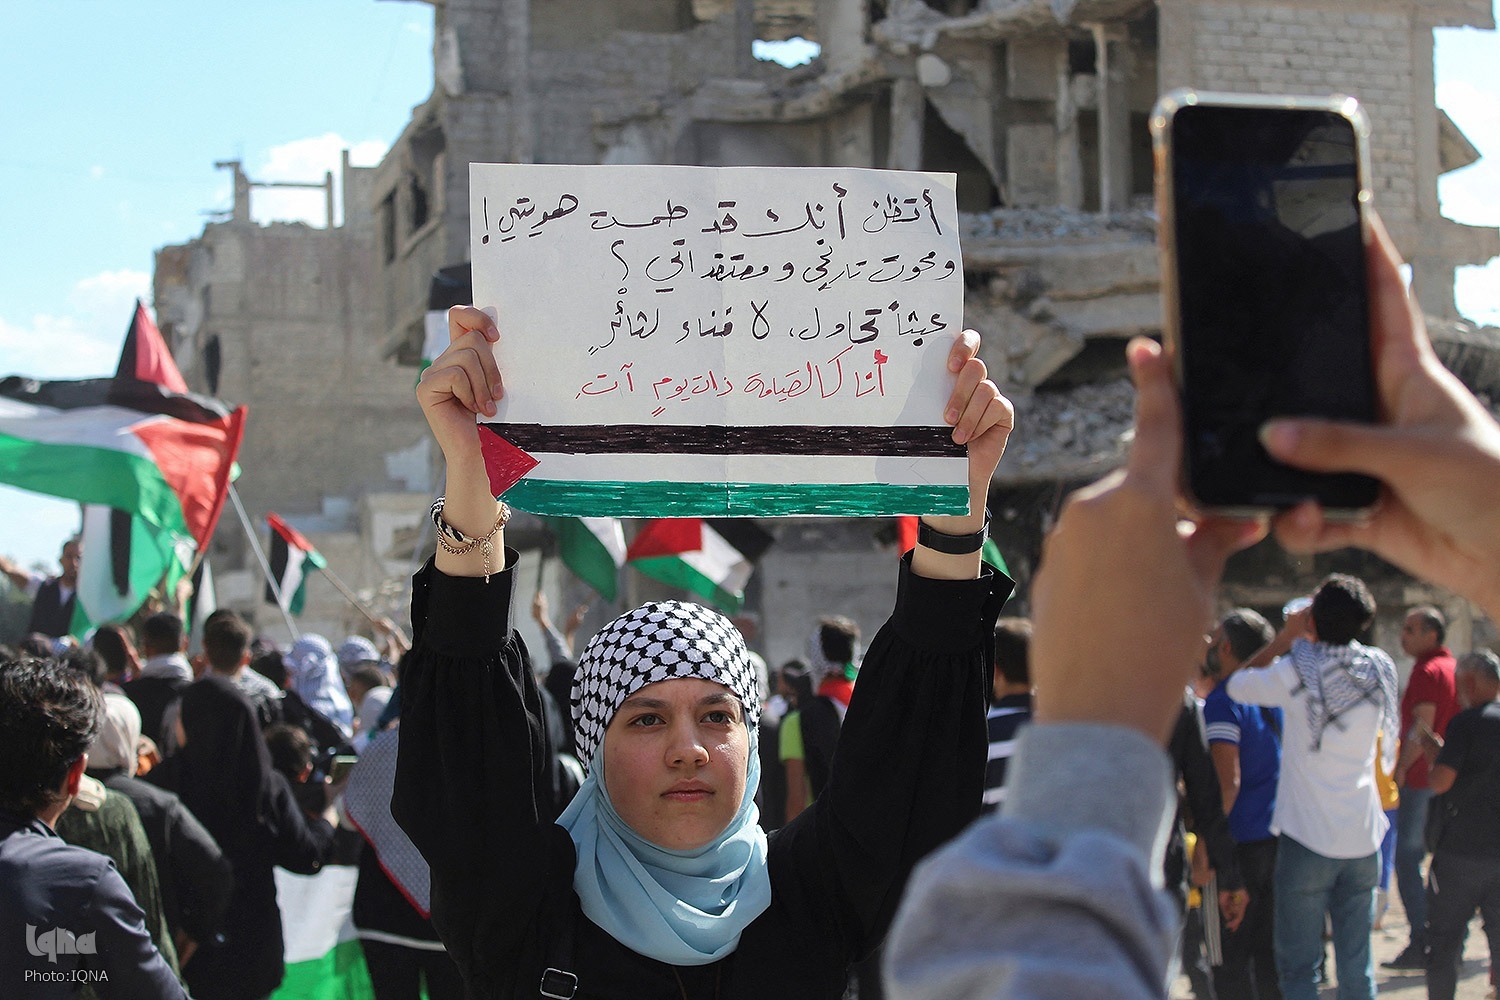 أتظن أنك قد طمست هويتي!
ومحوت تاريخي ومعتقداتي؟
عبثاً تحاول، لا فناء لثائْرٍ
أنا كالقيامة ذات يومٍ آتِ.
Iqna
Photo:IQNA